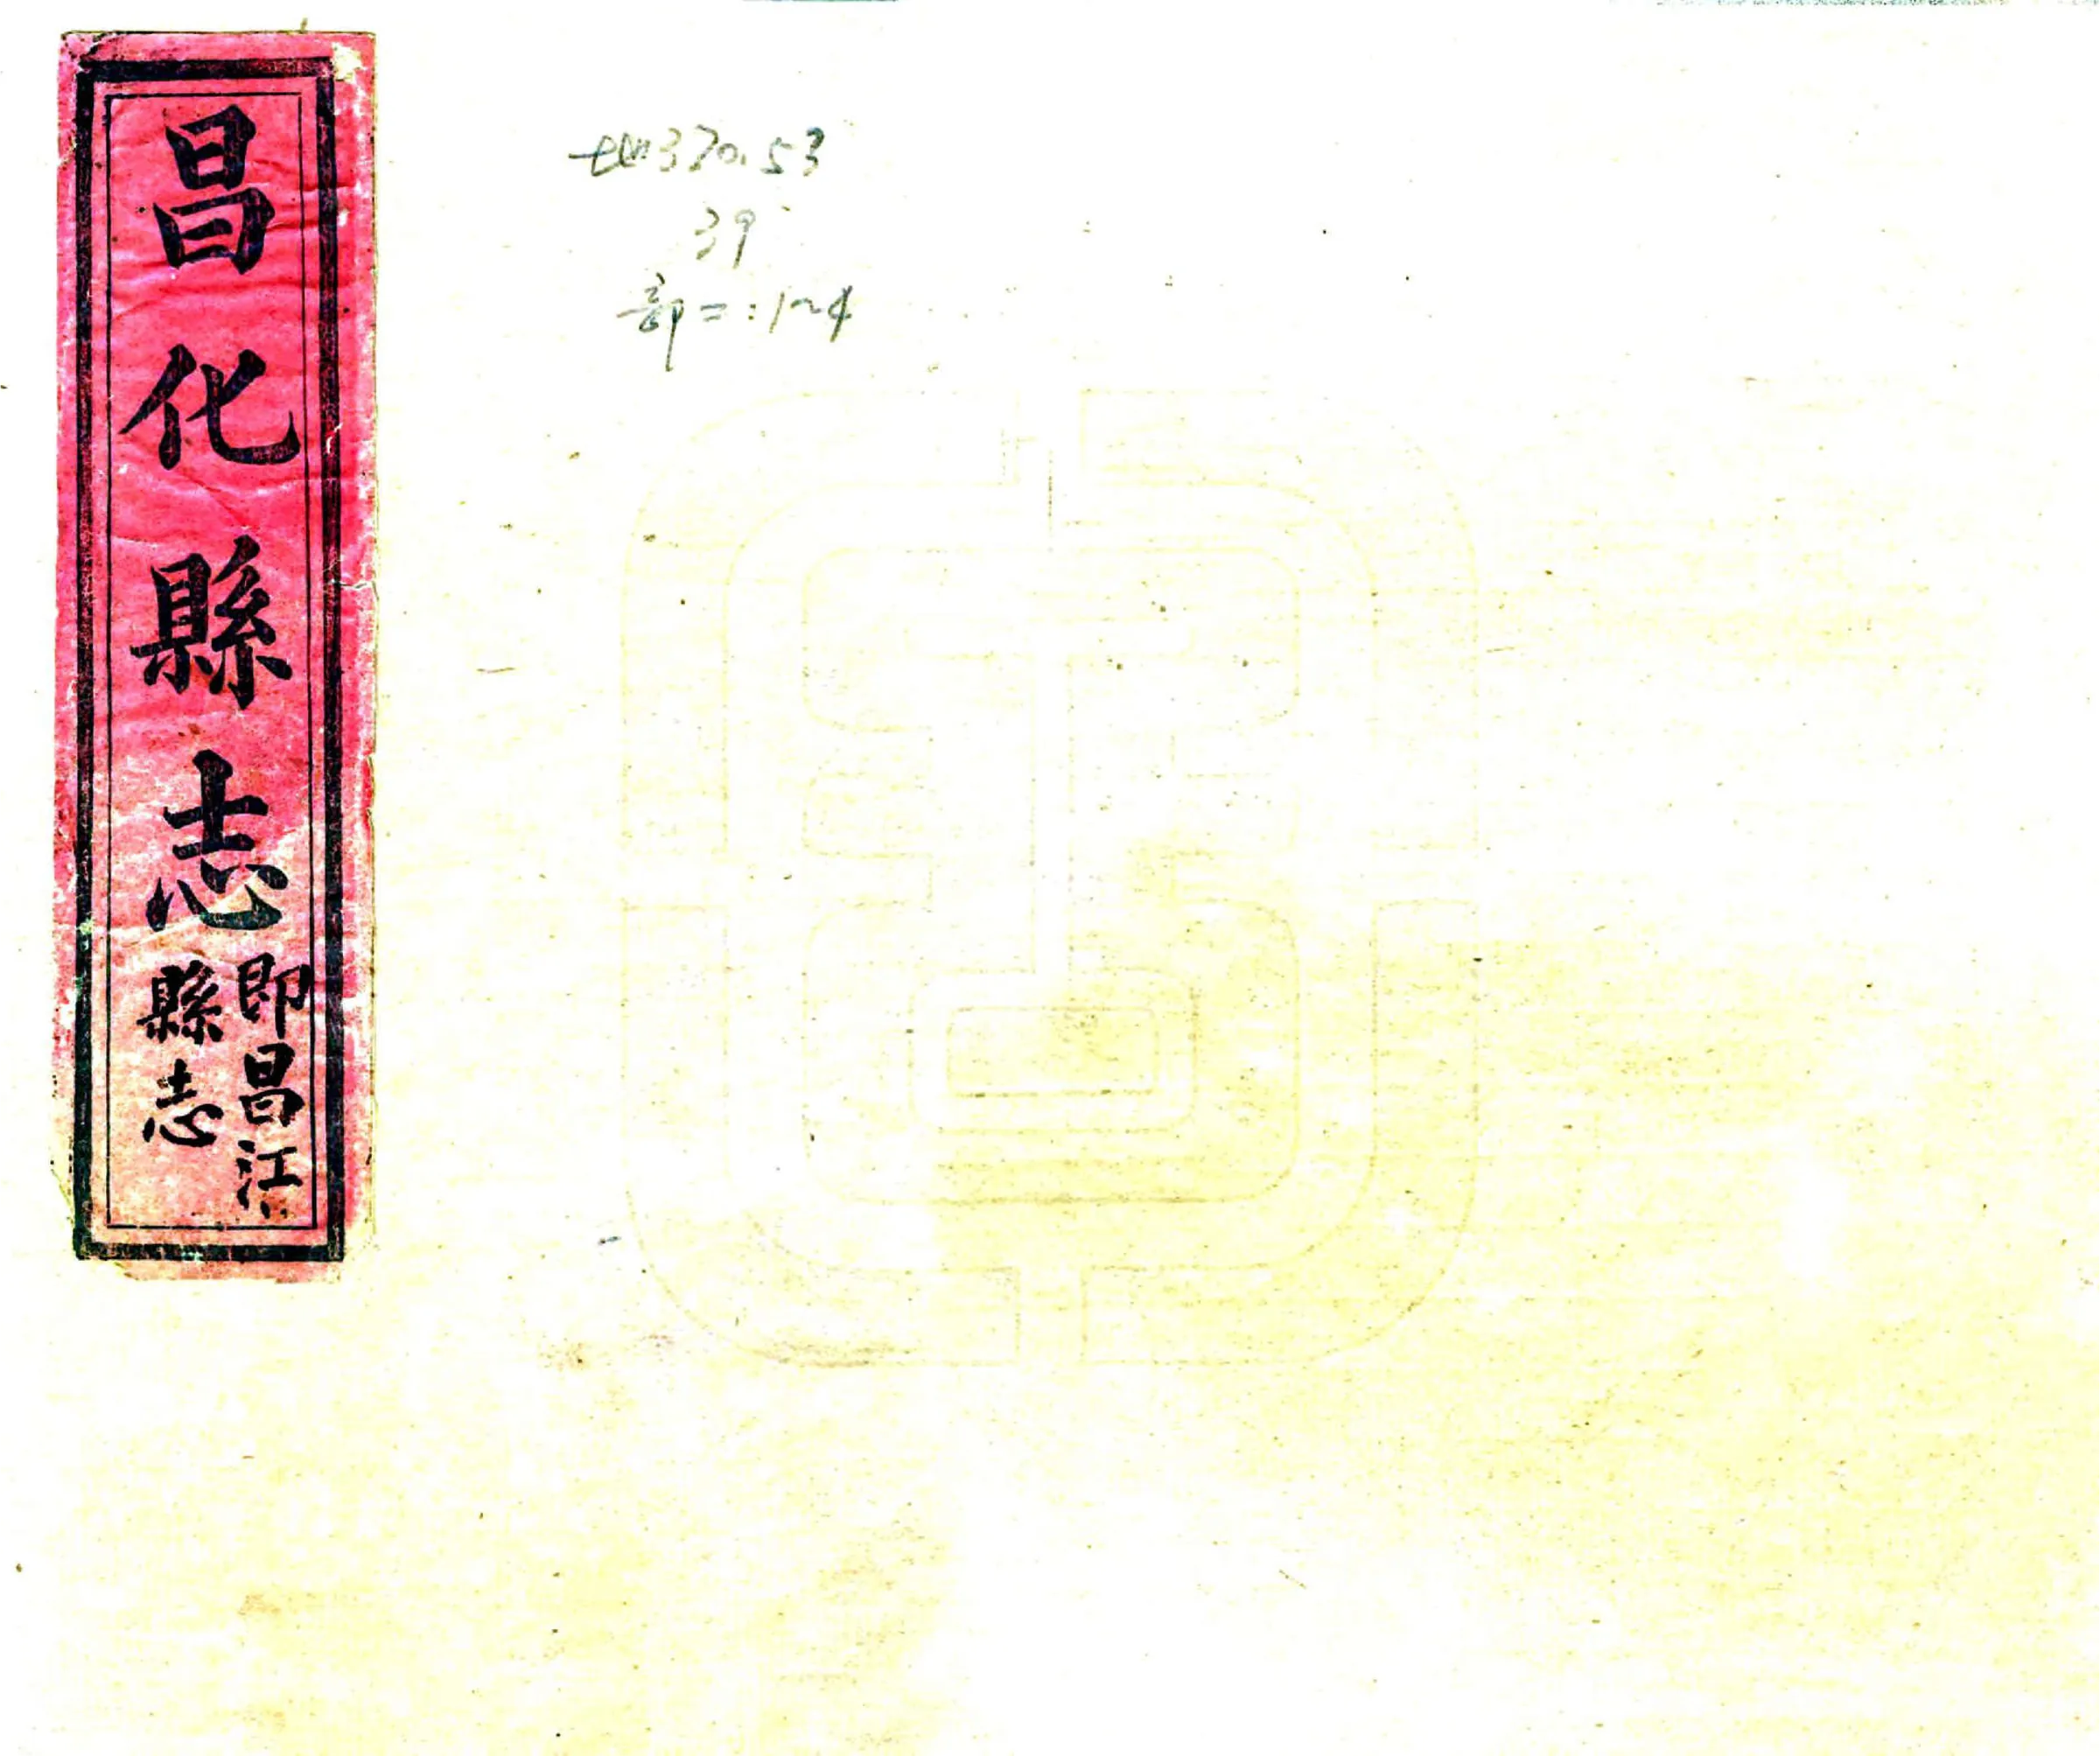 昌化縣志
即昌江
縣志
地370.53
39
部二:1~4